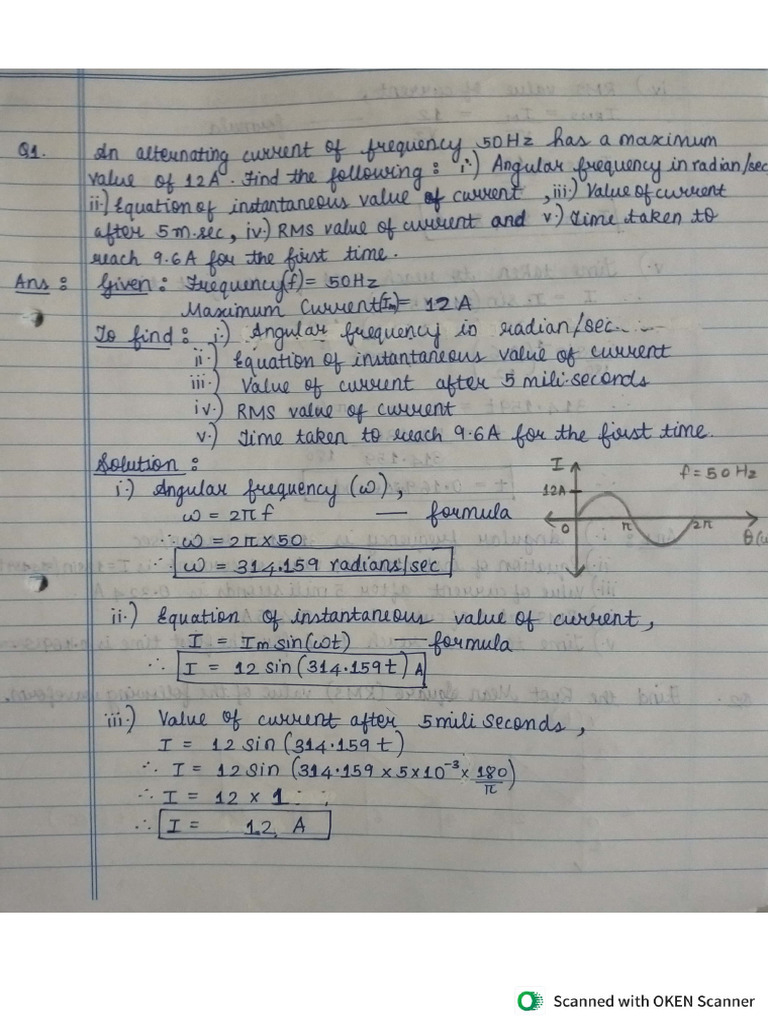 Q1. An alternating current of frequency 50Hz has a maximum
value of 12A. Find the following : i.) Angular frequency in radian/sec
ii.) Equation of instantaneous value of current , iii.) Value of current
after 5 m.sec, iv.) RMS value of current and v.) Time taken to
reach 9.6A for the first time.
Ans : Given : Frequency(f) = 50Hz
Maximum Current(Im) = 12 A
To find : i.) Angular frequency in radian/sec.
ii.) Equation of instantaneous value of current
iii.) Value of current after 5 mili-seconds
iv.) RMS value of current
v.) Time taken to reach 9.6A for the first time.
Solution :
i.) Angular frequency (ω),
ω = 2πf — formula
∴ ω = 2π × 50
∴ ω = 314.159 radians/sec
I
12A
f = 50Hz
0 π 2π
ii.) Equation of instantaneous value of current,
I = Im sin(ωt) — formula
∴ I = 12 sin (314.159t) A
iii.) Value of current after 5 mili seconds,
I = 12 sin (314.159 t)
∴ I = 12 sin (314.159 × 5 × 10⁻³ × 180/π)
∴ I = 12 × 1
∴ I = 12 A
Scanned with OKEN Scanner